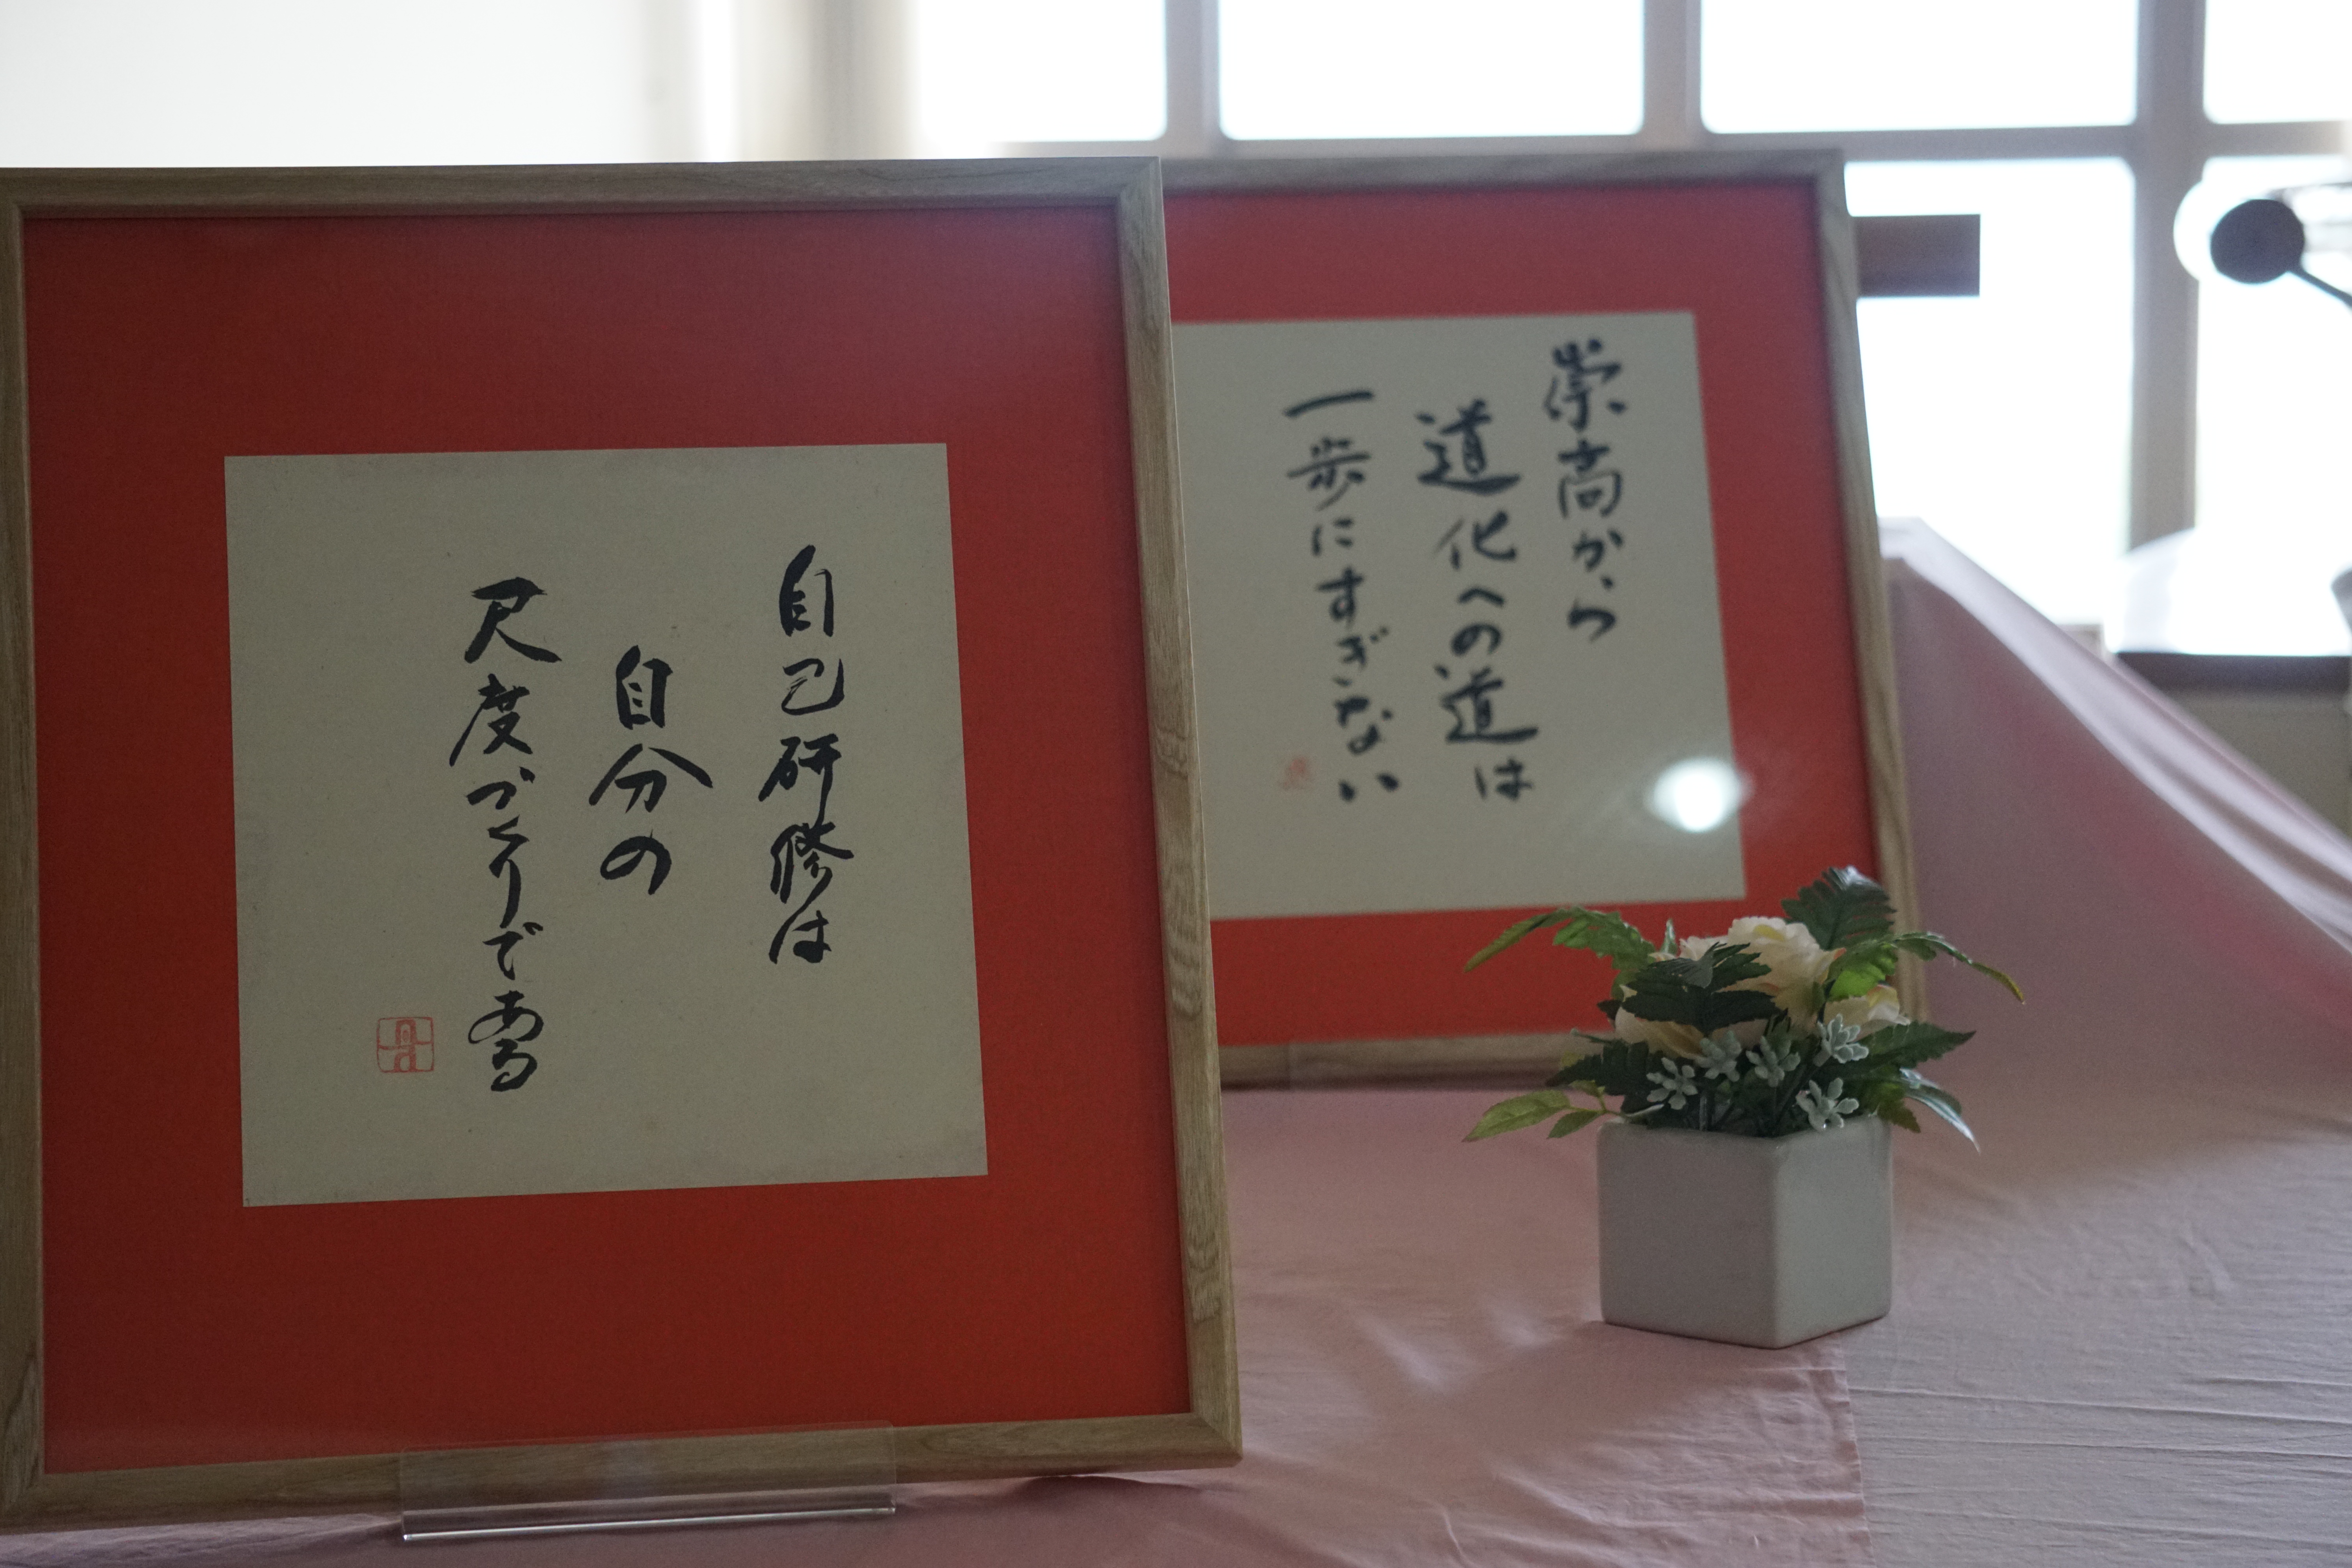 自己研修は
自分の
尺度づくりである
崇高から
道化への道は
一歩にすぎない